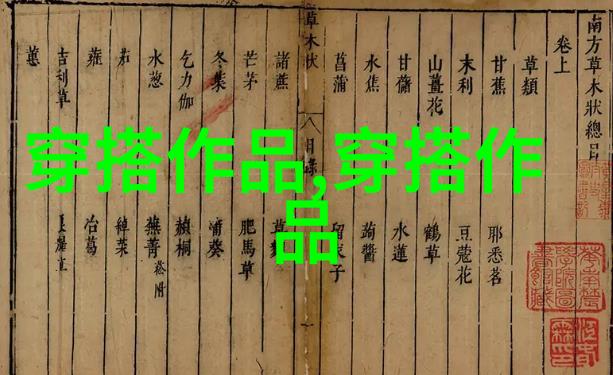 南方草木狀總目
卷上
草類
甘蕉 耶悉茗
末利 豆蔻花
山薑花 鶴草
甘藷 水蓮
水蕉 蒟醬
菖蒲 子
草木狀 目錄
諸蔗 草
芒茅 肥馬草
冬葉 蒲葵
乞力伽 赬桐
水葱 蕪菁 菘附
茄 綽菜
蕹 冶葛
吉利草
蕙
穿搭作品,穿搭作
品